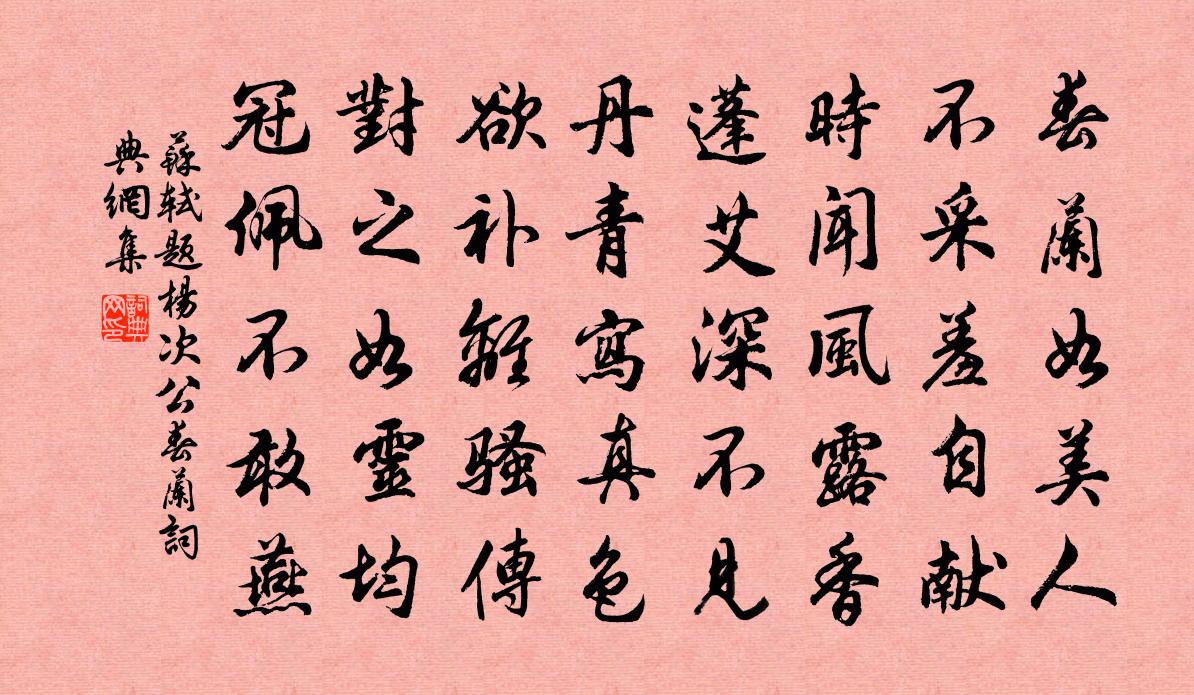 春蘭如美人
不采羞自献
時聞風露香
蓬艾深不見
丹青寫真色
欲补離騷傳
對之如靈均
冠佩不敢燕
蘇軾題楊次公春蘭詞
典網集
詞典
网印